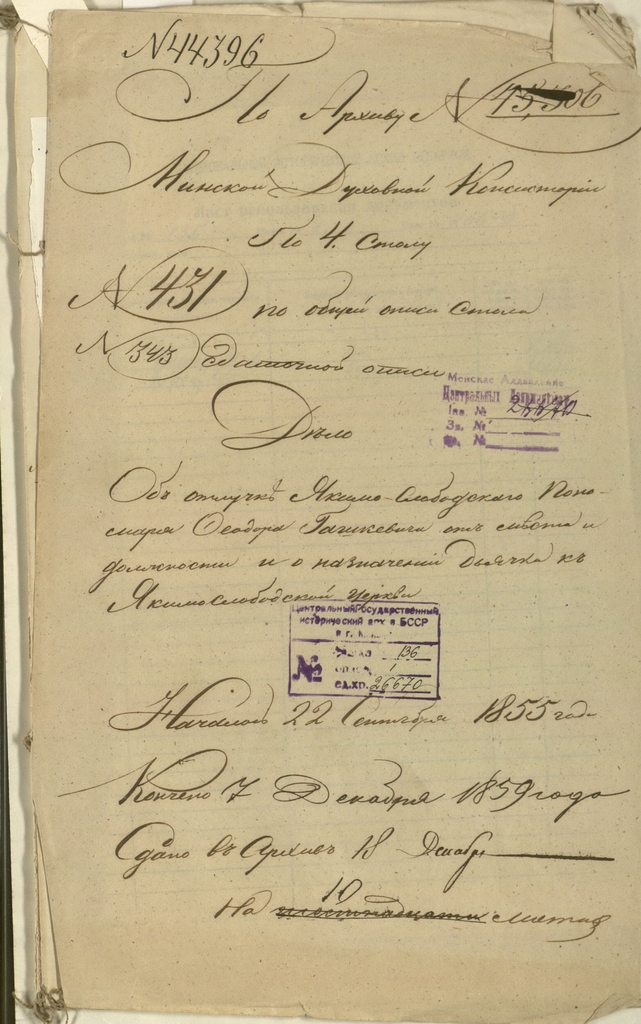 N44396
По Архиву N
Минской Духовной Консисторіи
По 4. столу
N 431 по общей описи стола
N 343 Сдаточной описи
Менскае Аддзяленне
Центральных
Інв. № 26670
Зв. №
№
Дѣло
Объ отлучкѣ Якимо-Слободскаго Поно-
маря Ѳеодора Гашкевича отъ мѣста и
должности и о назначеніи дьячка къ
Якимослободской церкви
Центральный Государственный
исторический арх в БССР
в г.
№ 136
1
ЕД.ХР. 26670
Началось 22 Сентября 1855 года
Кончено 7 Декабря 1859 года
Сдано въ Архивъ 18 Декабр
10
На листахъ